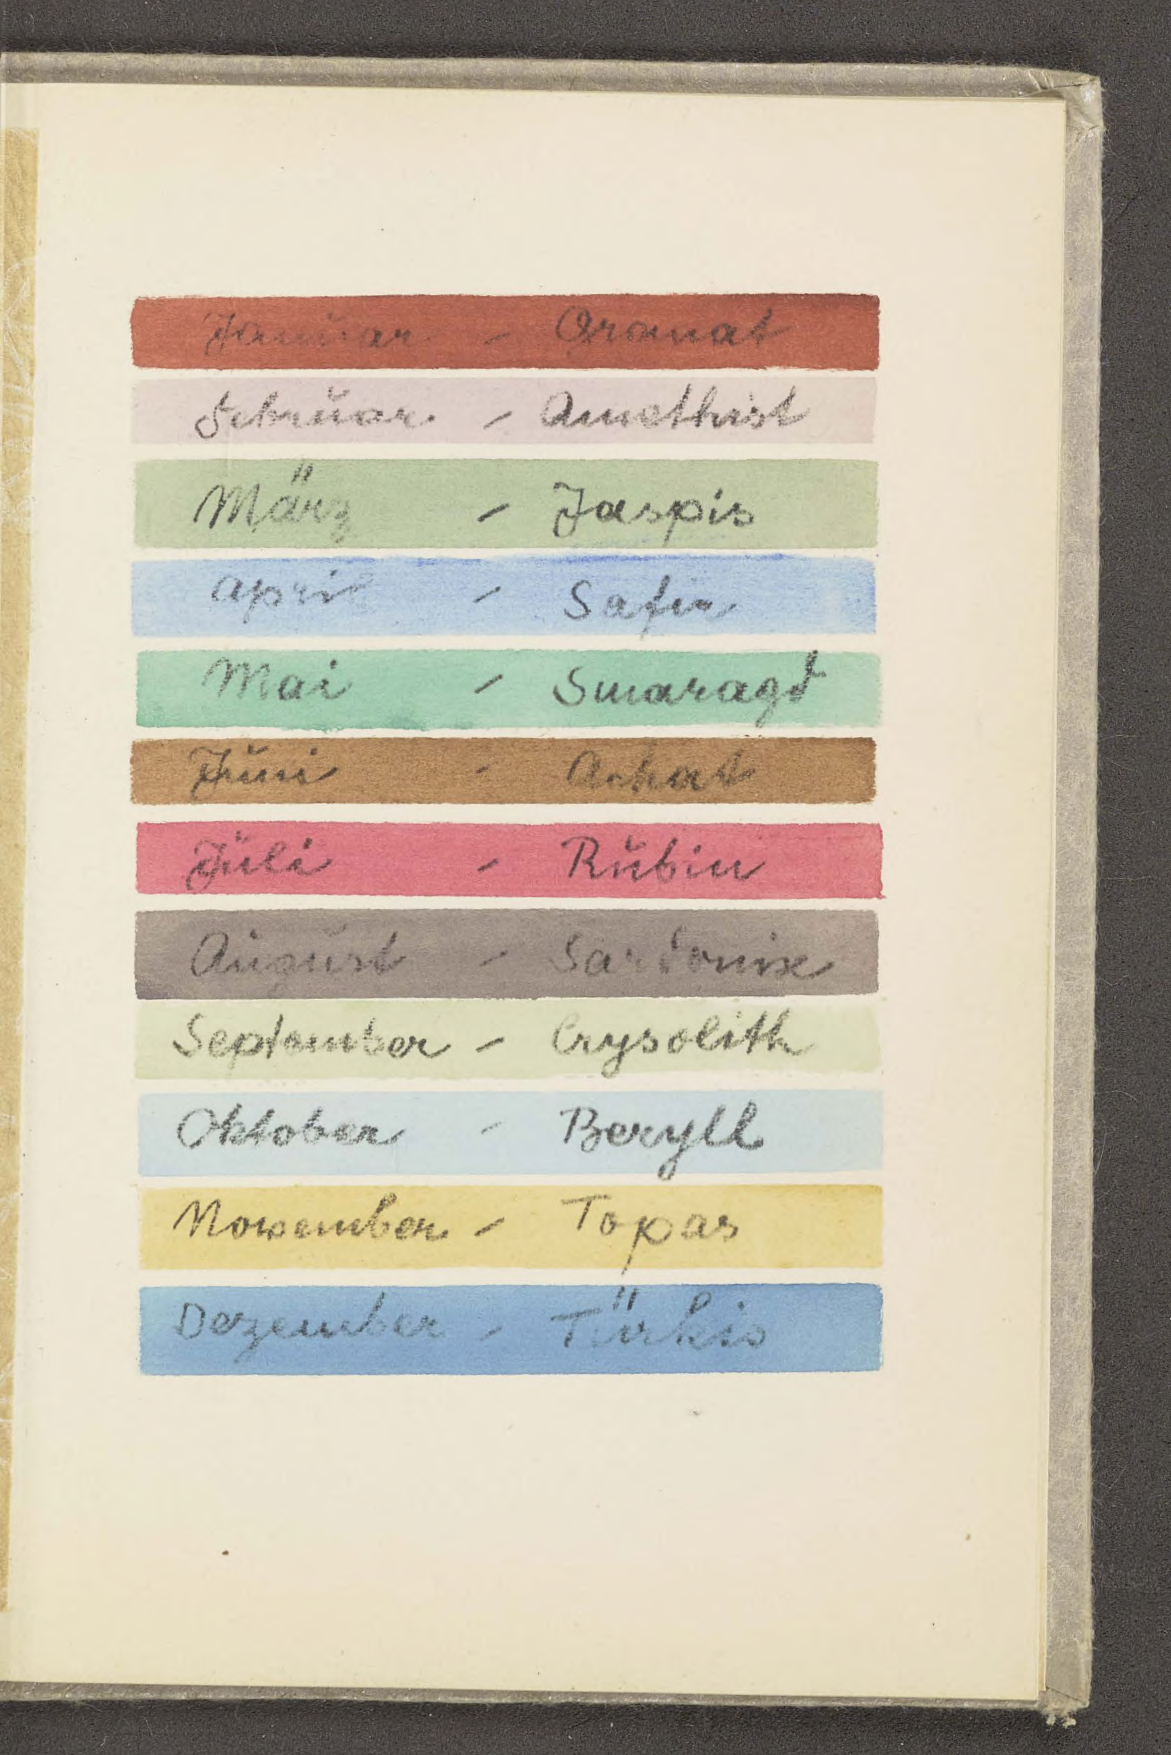 Januar - Granat
Februar - Amethist
März - Jaspis
April - Safir
Mai - Smaragd
Juni - Achat
Juli - Rubin
August - Sardonix
September - Crysolith
Oktober - Beryll
Nowember - Topas
Dezember - Türkis